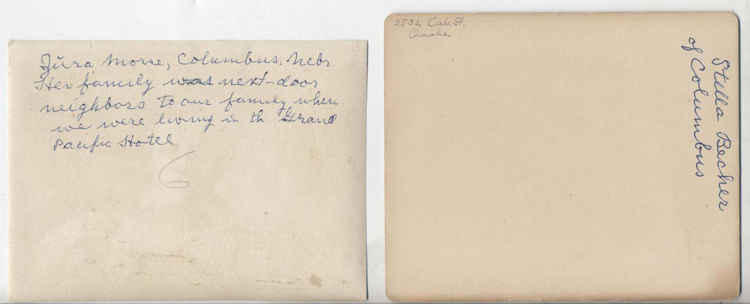 Zura Morse, Columbus, Nebr
Her family was next-door
neighbors to our family when
we were living in th Grand
Pacific Hotel.
6
2532 Cals. St.
Omaha
Stella Becher
of Columbus